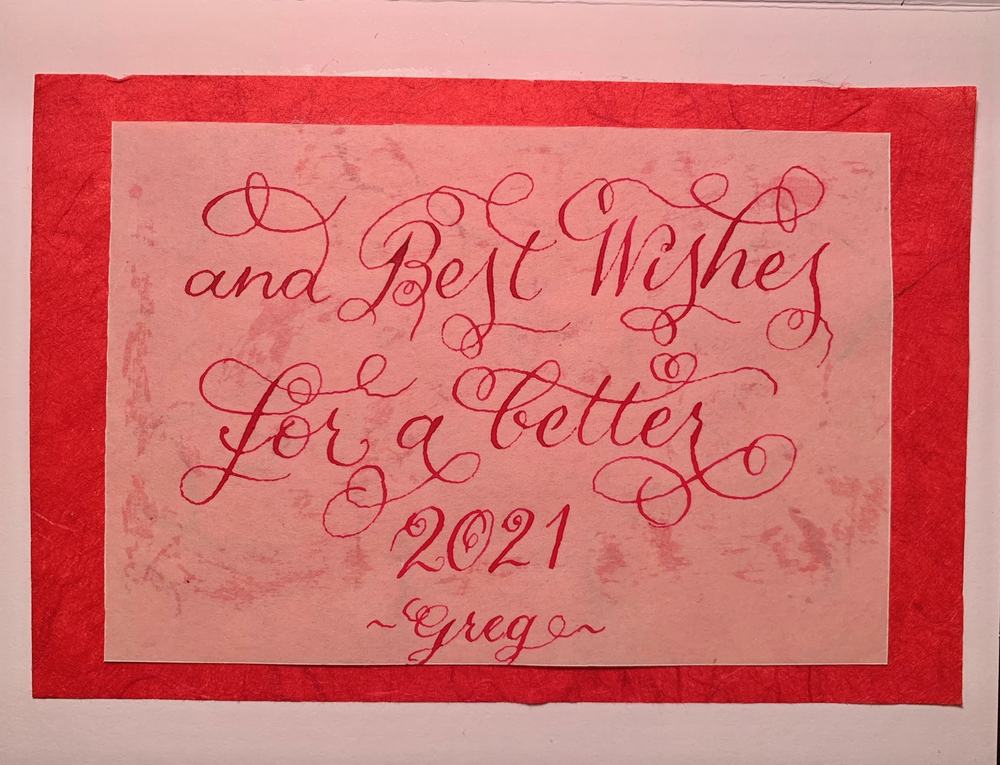 and Best Wishes
for a better
2021
~Greg~